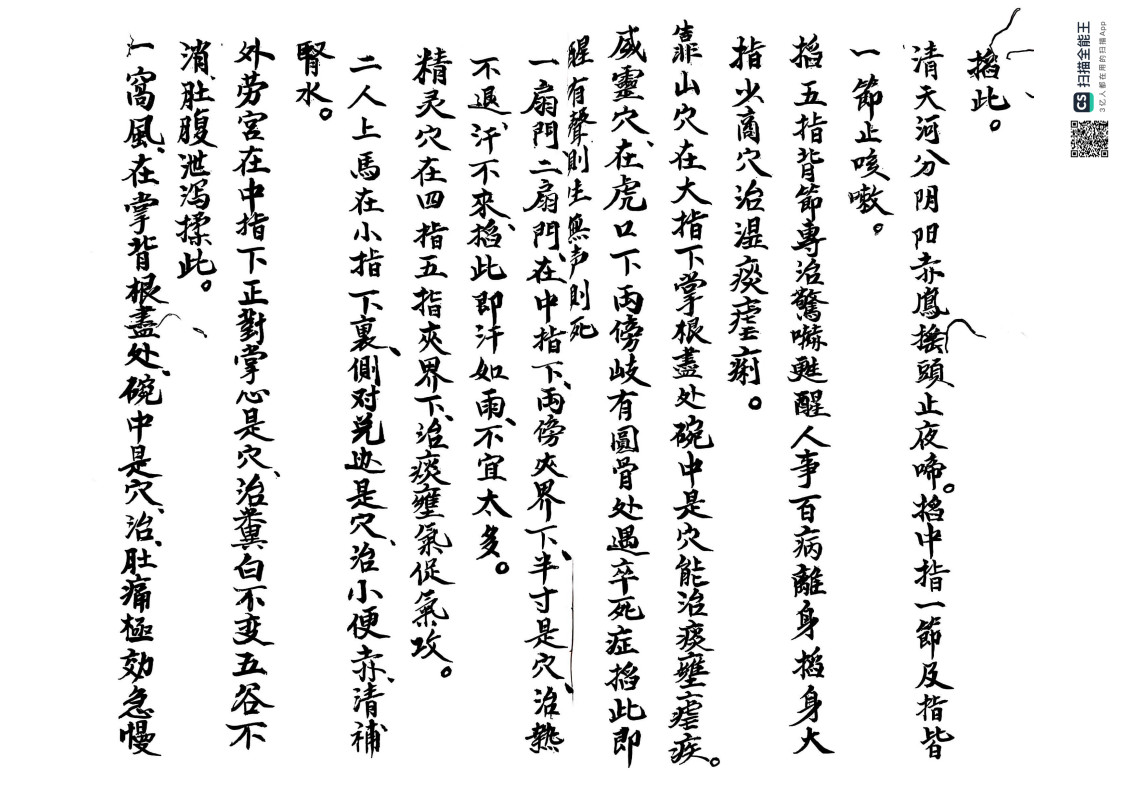 掐此。
清天河分阴阳赤鳳搖頭止夜啼。掐中指一節及指背
一節止咳嗽。
掐五指背節專治驚嚇甦醒人事百病離身掐身大
指少商穴治湿痰瘧痢。
靠山穴在大指下掌根盡处碗中是穴能治痰壅瘧疾。
威靈穴、在虎口下兩傍岐有圓骨处遇卒死症掐此即
醒有聲則生無声則死
一扇門二扇門、在中指下、兩傍夾界下、半寸是穴、治熱
不退、汗不來、掐此即汗如雨、不宜太多。
精灵穴在四指五指夾界下、治痰壅氣促氣攻。
二人上馬在小指下裏、側对兑边是穴、治小便赤、清補
腎水。
外劳宮在中指下正對掌心是穴、治糞白不变五谷不
消、肚腹泄泻揉此。
一窩風、在掌背根盡处、碗中是穴、治、肚痛極効急慢
CS 扫描全能王
3亿人都在用的扫描App